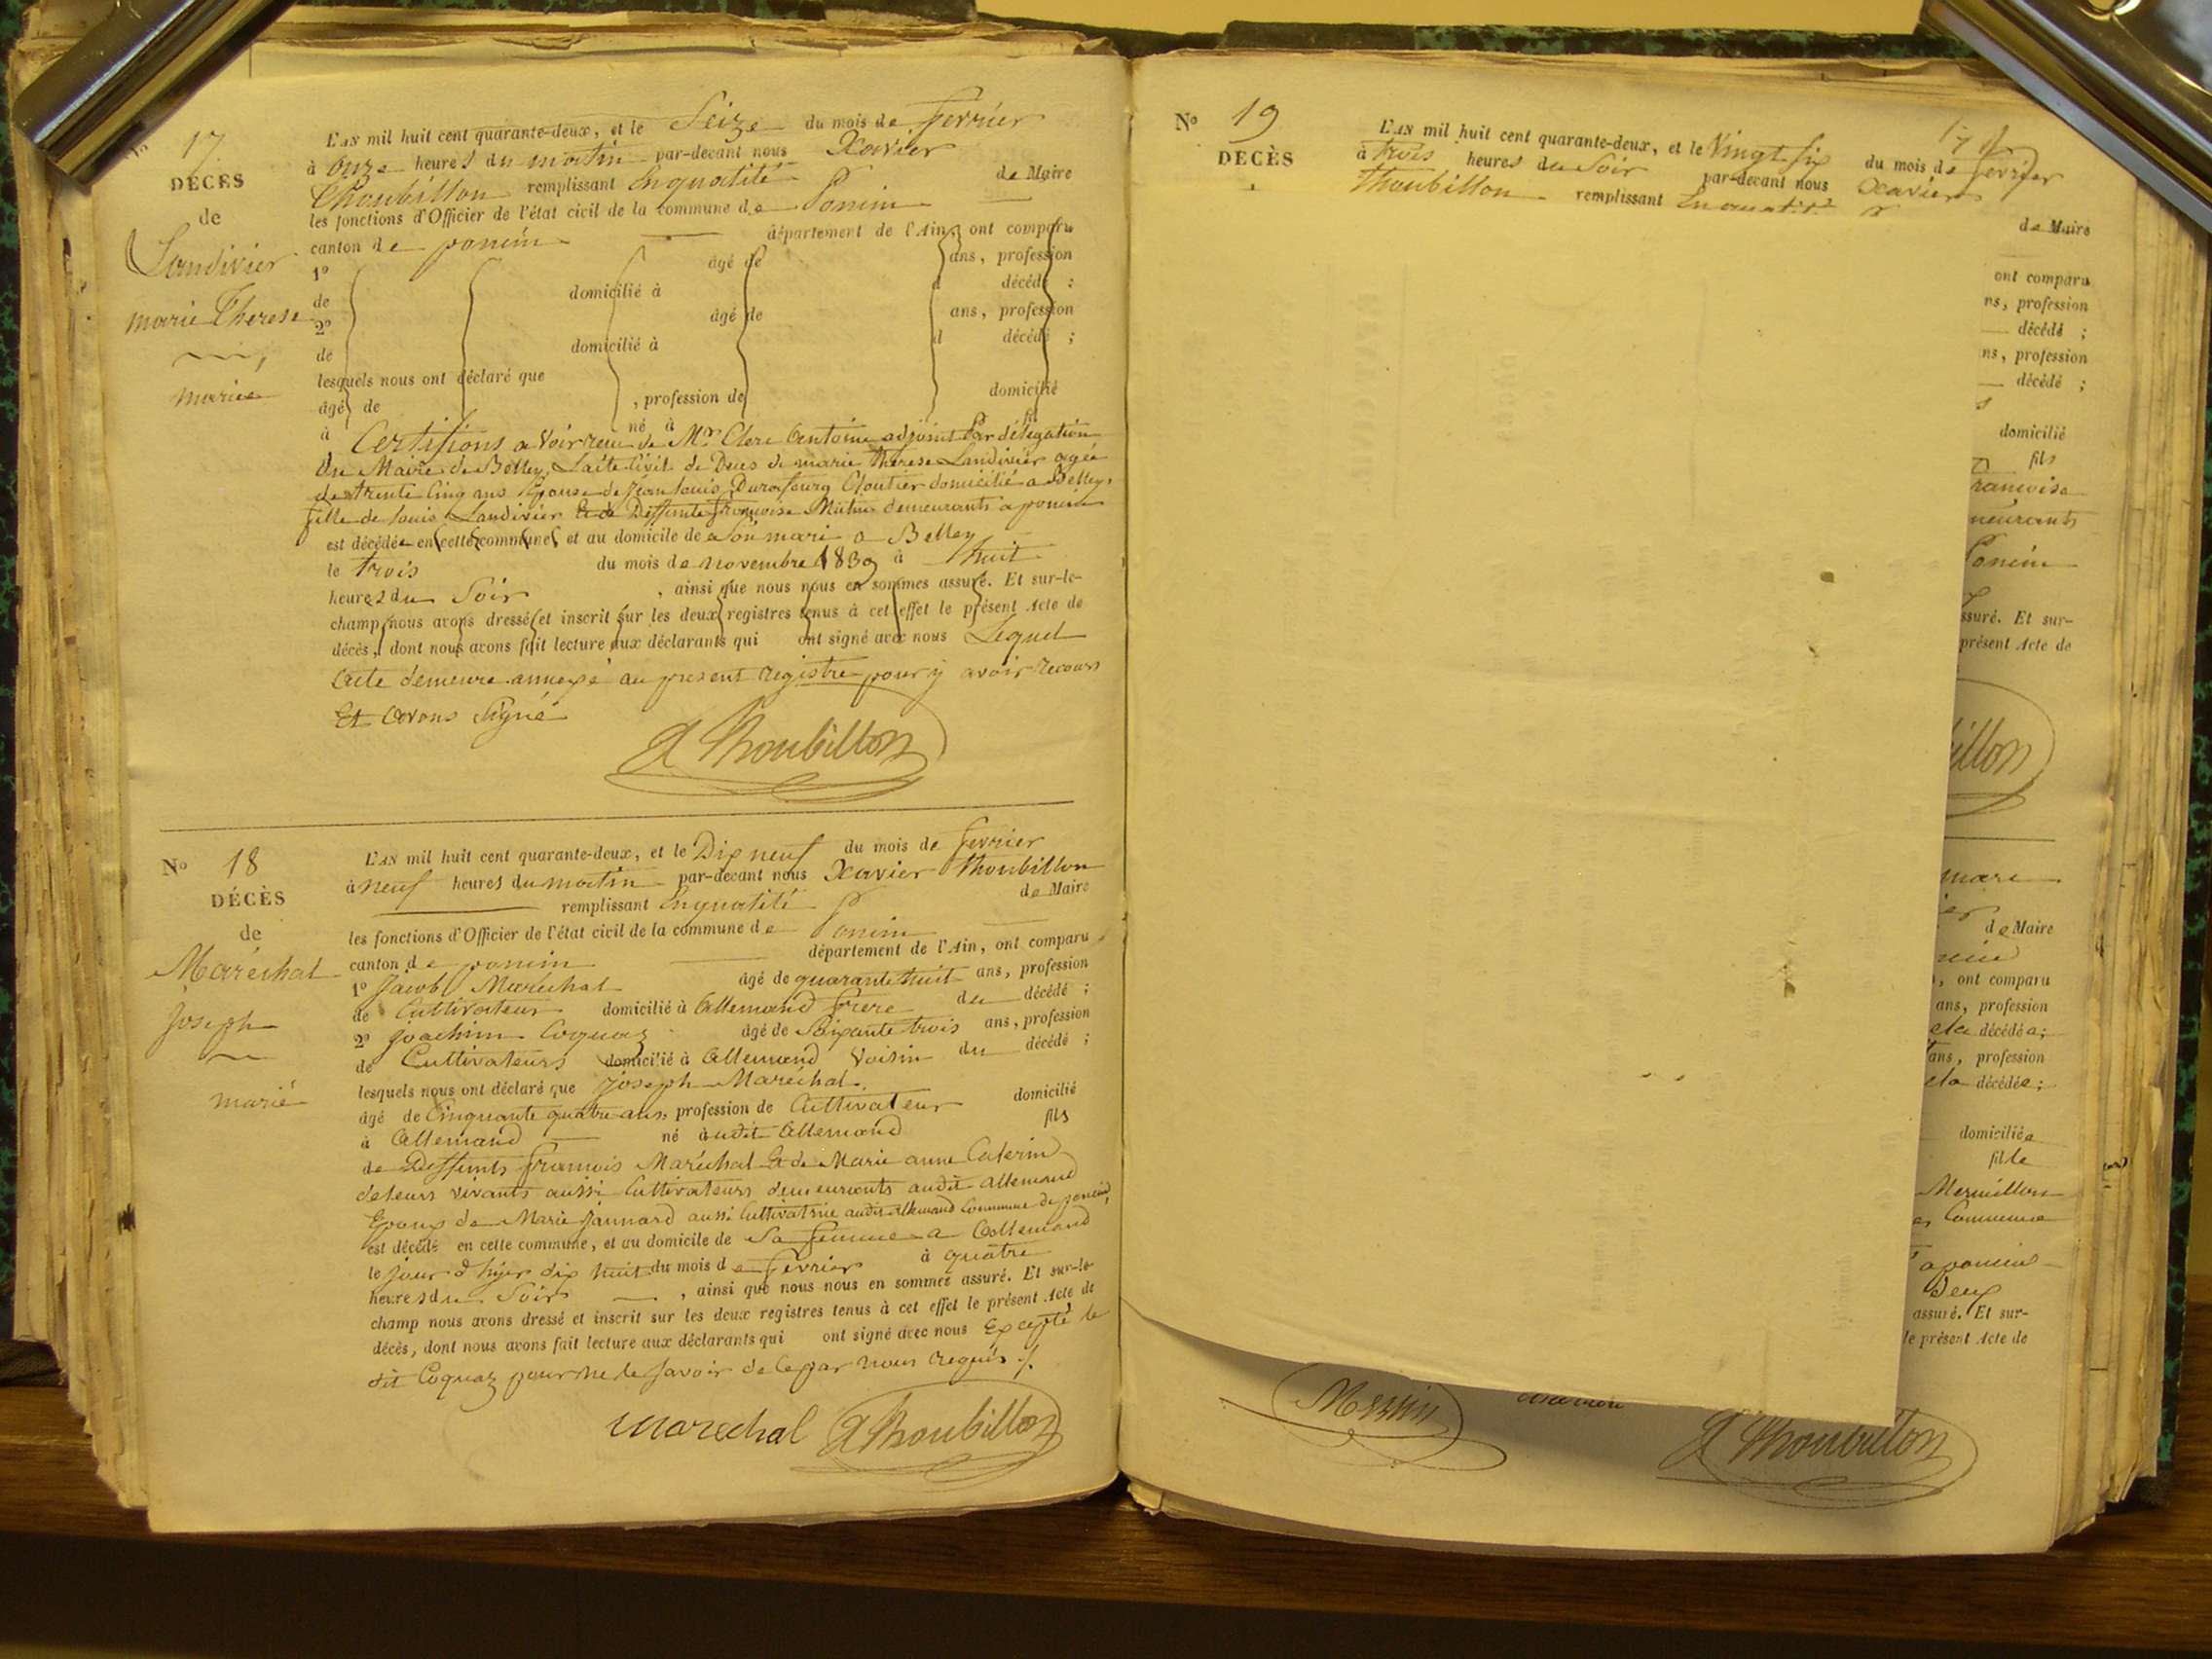 17
DÉCÈS
de
Landivier
marie Therese
mariée
L'AN mil huit cent quarante-deux, et le Seize du mois de fevrier
à Onze heures du matin par-devant nous Xavier
Thoubillon remplissant Enqualité de Maire
les fonctions d'Officier de l'état civil de la commune de Poncin
canton de poncin département de l'Ain, ont comparu
1º âgé de ans, profession
de domicilié à d décédé ;
2º âgé de ans, profession
de domicilié à d décédé ;
lesquels nous ont déclaré que
âgé de , profession de domicilié
à né à fil
Certifions avoir recu de Mr Clerc Antoine adjoint Par délégation
Du Maire de Belley, L'acte Civil de Deces de marie therese Landivier agée
de trente Cinq ans Epouse de Jean louis Durafourg Cloutier domicilié a Belley,
fille de louis Landivier Et de Deffunte françoise Mathie demeurants a poncin
est décédée en cette commune, et au domicile de Son mari a Belley
le trois du mois de novembre 1839 à huit
heures du Soir , ainsi que nous nous en sommes assuré. Et sur-le-
champ nous avons dressé et inscrit sur les deux registres tenus à cet effet le présent Acte de
décès, dont nous avons fait lecture aux déclarants qui ont signé avec nous Lequel
Acte demeure annexé au present registre pour y avoir recours
Et Avons Signé
X Thoubillon
Nº 18
DÉCÈS
de
Maréchal
Joseph
marié
L'AN mil huit cent quarante-deux, et le Dix neuf du mois de fevrier
à neuf heures du matin par-devant nous Xavier Thoubillon
remplissant Enqualité de Maire
les fonctions d'Officier de l'état civil de la commune de Poncin
canton de poncin département de l'Ain, ont comparu
1º Jacob Maréchal âgé de quarante huit ans, profession
de Cultivateur domicilié à Allemand frere du décédé ;
2º Joachim Coquaz âgé de Soixante trois ans, profession
de Cultivateurs domicilié à Allemand Voisin du décédé ;
lesquels nous ont déclaré que Joseph Maréchal
âgé de Cinquante quatre ans, profession de Cultivateur domicilié
à Allemand né audit Allemand fils
de Deffunts françois Maréchal Et de Marie anne Caterin
de leurs vivants aussi Cultivateurs demeurants audit allemand
Epoux de Marie Jannard aussi Cultivatrice audit allemand Commune de poncin,
est décédé en cette commune, et au domicile de Sa femme a Allemand
le jour d'hyer dix huit du mois de fevrier à quatre
heures du Soir , ainsi que nous nous en sommes assuré. Et sur-le-
champ nous avons dressé et inscrit sur les deux registres tenus à cet effet le présent Acte de
décès, dont nous avons fait lecture aux déclarants qui ont signé avec nous Excepté le
dit Coquaz pour ne le Savoir de Ce par nous requis
marechal X Thoubillon
Nº 19
DÉCÈS
L'AN mil huit cent quarante-deux, et le Vingt Six du mois de fevrier
à trois heures du Soir par-devant nous Xavier
Thoubillon remplissant Enqualité de Maire
ont comparu
ns, profession
décédé ;
ns, profession
décédé ;
domicilié
fils
rancoise
meurants
Poncin
ssuré. Et sur-
présent Acte de
illon
de Maire
, ont comparu
ans, profession
de la décédée;
ans, profession
de la décédée;
domiciliée
fille
Mermillon
Commune
a poncin
Deux
assuré. Et sur-
le présent Acte de
X Thoubillon